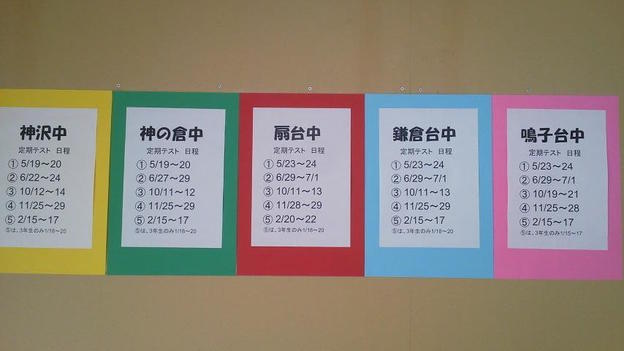 神沢中
定期テスト 日程
① 5/19～20
② 6/22～24
③ 10/12～14
④ 11/25～29
⑤ 2/15～17
⑤は、3年生のみ1/18～20
神の倉中
定期テスト 日程
① 5/19～20
② 6/27～29
③ 10/11～12
④ 11/25～29
⑤ 2/15～17
⑤は、3年生のみ1/18～20
扇台中
定期テスト 日程
① 5/23～24
② 6/29～7/1
③ 10/11～13
④ 11/28～29
⑤ 2/20～22
⑤は、3年生のみ1/18～20
鎌倉台中
定期テスト 日程
① 5/23～24
② 6/29～7/1
③ 10/11～13
④ 11/25～29
⑤ 2/15～17
⑤は、3年生のみ1/18～20
鳴子台中
定期テスト 日程
① 5/23～24
② 6/29～7/1
③ 10/19～21
④ 11/25～28
⑤ 2/15～17
⑤は、3年生のみ1/15～17